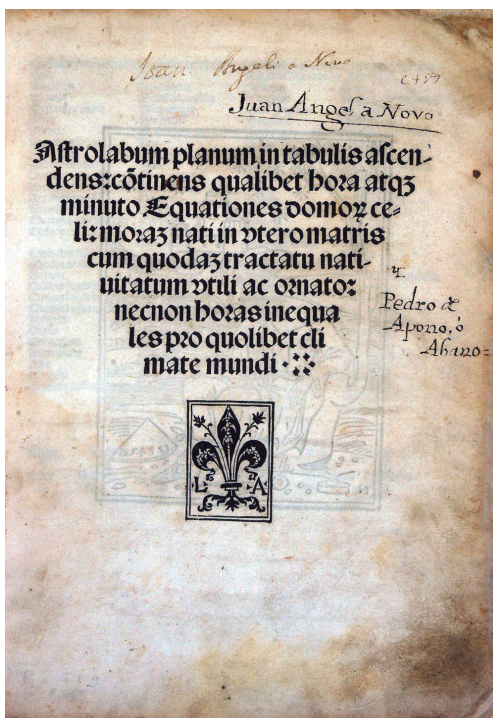 Joan Angeli a Novo
Juan Angel a Novo
Astrolabum planum in tabulis ascen-
dens: cõtinens qualibet hora atqꝫ
minuto Equationes domoꝝ ce-
li: moraꝫ nati in vtero matris
cum quodaꝫ tractatu nati-
uitatum vtili ac ornato:
necnon horas inequa
les pro quolibet cli
mate mundi
y
Pedro de
Apono, ó
Abano=
L A